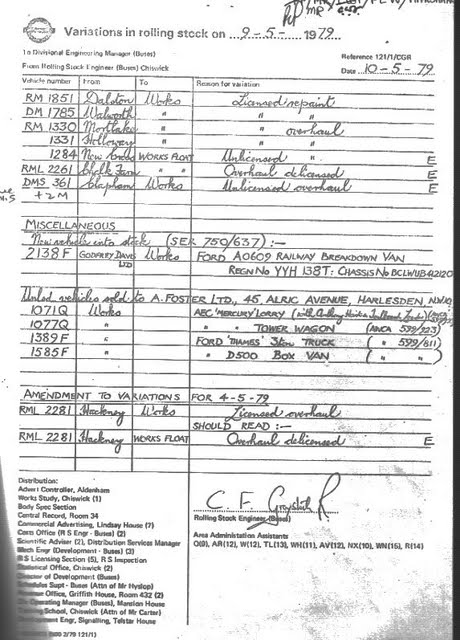 Variations in rolling stock on 9-5- 1979
To Divisional Engineering Manager (Buses)
Reference 121/1/CGR
From Rolling Stock Engineer (Buses) Chiswick
Date 10-5-79
Vehicle number From To Reason for variation
RM 1851 Dalston Works Licensed repaint
DM 1785 Walworth " " "
RM 1330 Mortlake " " overhaul
1331 Holloway " " "
1284 New Cross WORKS FLOAT Unlicensed " E
RML 2261 Chalk Farm " " Overhaul delicensed E
DMS 361 Clapham Works Unlicensed overhaul E
+2M
MISCELLANEOUS
New vehicle into stock (SER 750/637) :-
2138F GODFREY DAVIS LTD Works FORD A0609 RAILWAY BREAKDOWN VAN
REGN No YYH 138T: CHASSIS No BCLWUB
Unlsd vehicles sold to A. FOSTER LTD., 45, ALRIC AVENUE, HARLESDEN, NW10
1071Q Works AEC 'MERCURY' LORRY
1077Q " " TOWER WAGON (ANCA 599/223)
1389F " FORD 'THAMES' 3ton TRUCK ( " 599/811)
1585F " " D500 BOX VAN ( " " )
AMENDMENT TO VARIATIONS FOR 4-5-79
RML 2281 Hackney Works Licensed overhaul
SHOULD READ :-
RML 2281 Hackney WORKS FLOAT Overhaul delicensed E
Distribution:
Advert Controller, Aldenham
Works Study, Chiswick (1)
Body Spec Section
Central Record, Room 34
Commercial Advertising, Lindsay House (7)
Costs Office (R S Engr - Buses) (2)
Scientific Adviser (2), Distribution Services Manager
Mech Engr (Development - Buses) (3)
RS Licensing Section (5), R S Inspection
Statistical Office, Chiswick (2)
Director of Development (Buses)
Schedules Supt - Buses (Attn of Mr Hyslop)
Revenue Office, Griffith House, Room 432 (2)
Operating Manager (Buses), Mansion House
Training School, Chiswick (Attn of Mr Carter)
Development Engr, Signalling, Telstar House
C F
Rolling Stock Engineer (Buses)
Area Administration Assistants
Q(9), AR(12), W(12), TL(13), WH(11), AV(12), NX(10), WN(15), R(14)
2/79 121/1)